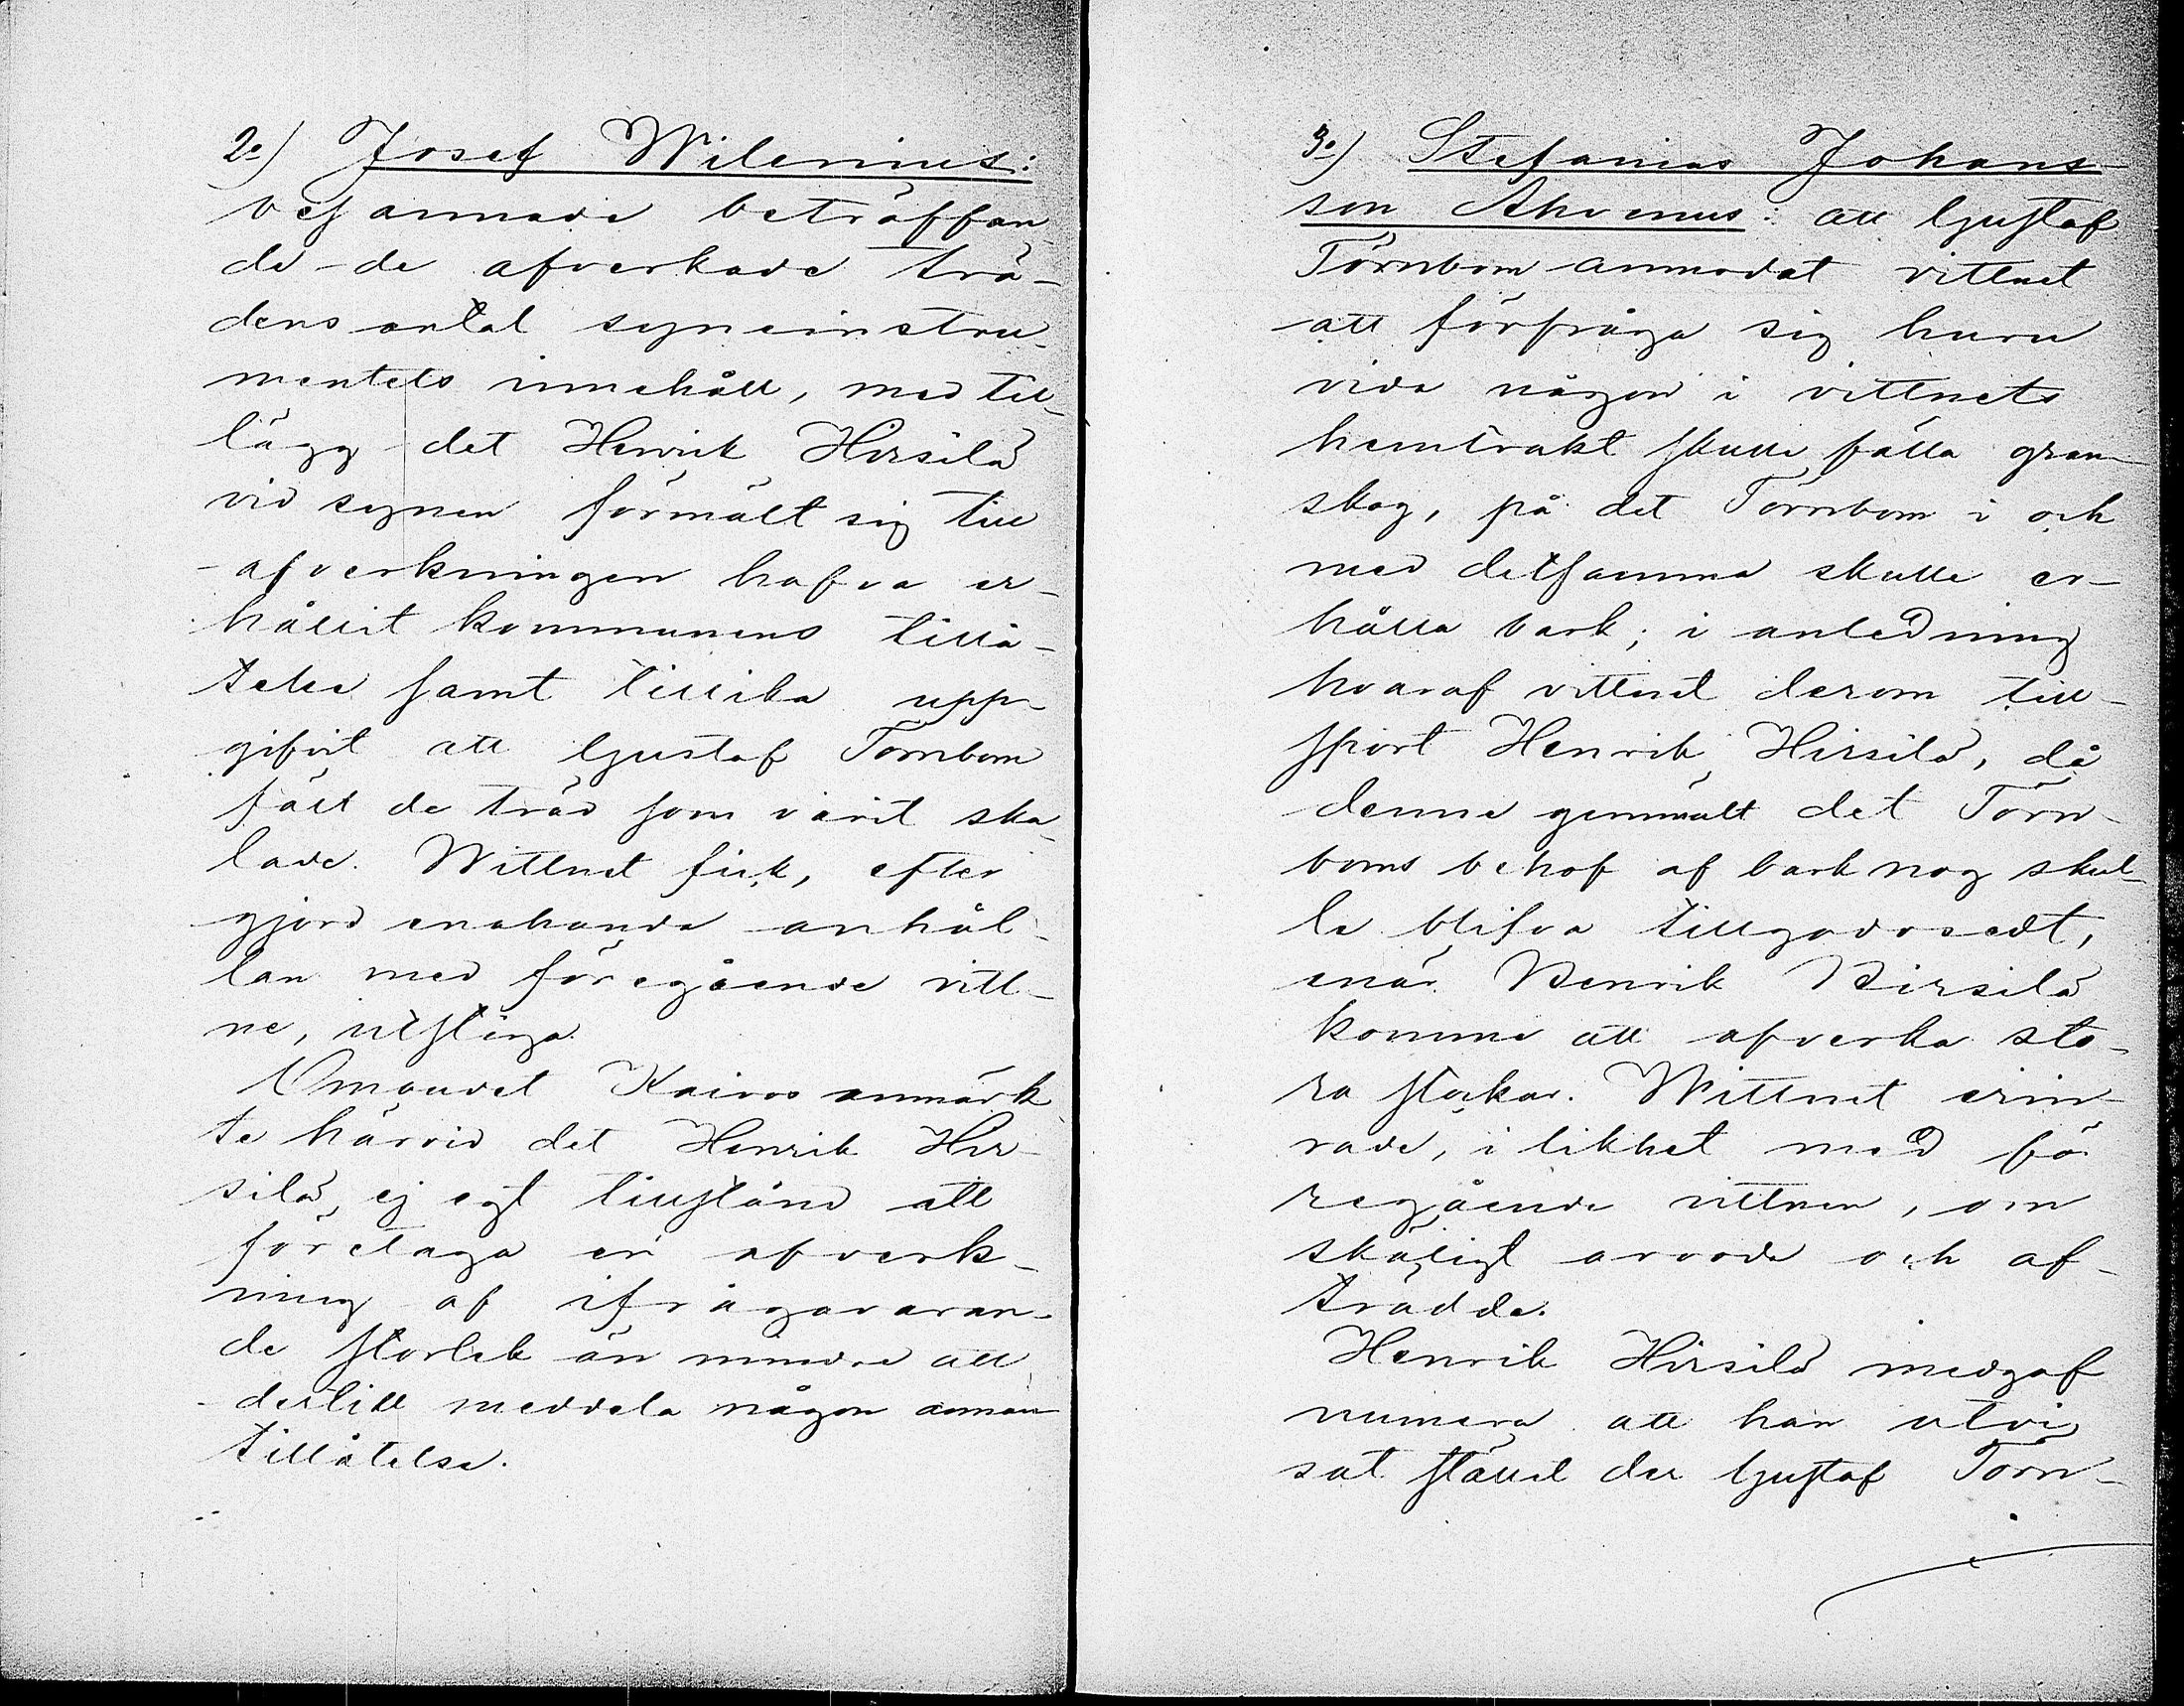 2o) Josef Wilenius:
besannade beträffan-
de de afverkade trä-
dens antal syneinstru-
mentets innehåll, med till-
lägg det Henrik Hirsilä
vid synen förmält sig till
afverkningen hafva er-
hållit kommunens tillå-
telse samt tillika upp-
gifvit att Gustaf Törnbom
fält de träd som varit ska-
lade. Wittnet fick, efter
gjord enahanda anhål-
lan med föregående vitt-
ne, utstiga.
Ombudet Kaivos anmärk-
te härvid det Henrik Hir-
silä ej egt tillstånd att
företaga en afverk-
ning af ifrågavaran-
de storlek än mindre att
dertill meddela någon annan
tillåtelse.
3o) Stefanias Johans-
son Ahvenus: att Gustaf
Törnbom anmodat vittnet
att förfråga sig huru
vida någon i vittnets
hemtrakt skulle fälla gran-
skog, på det Törnbom i och
med detsamma skulle er-
hålla bark; i anledning
hvaraf vittnet derom till-
sport Henrik Hirsilä, då
denne genmält det Törn-
boms behof af bark nog skul-
le blifva tillgodosedt,
enär Henrik Hirsilä
komme att afverka sto-
ra stockar. Wittnet erin-
rade, i likhet med fö-
regående vittnen, om
skäligt arvode och af-
trädde.
Henrik Hirsilä medgaf
numera att han utvi-
sat stället der Gustaf Törn-